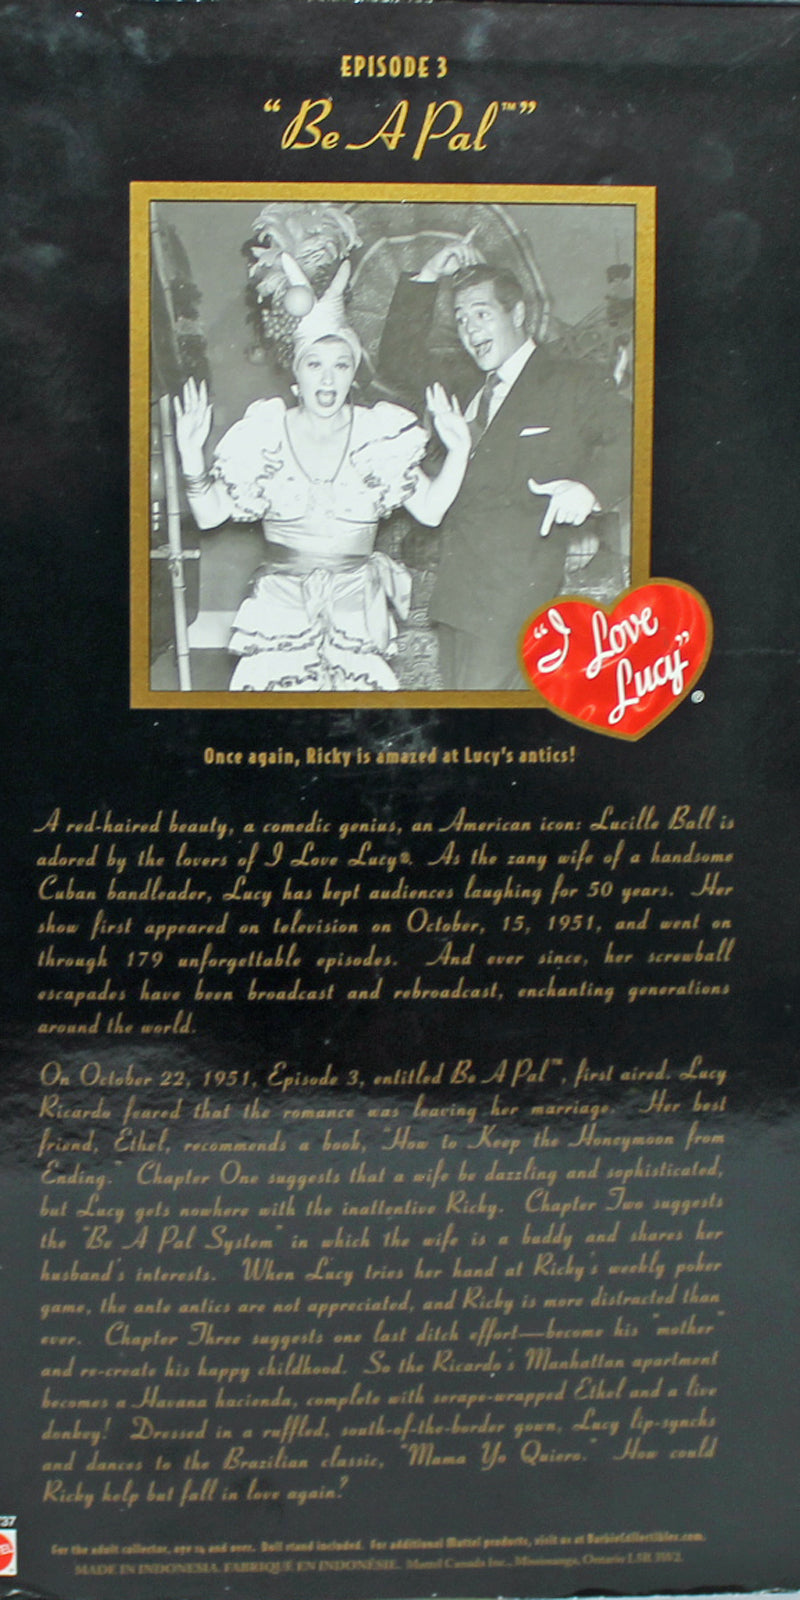 EPISODE 3
“Be A Pal™”
“I Love Lucy”®
Once again, Ricky is amazed at Lucy's antics!
A red-haired beauty, a comedic genius, an American icon: Lucille Ball is
adored by the lovers of I Love Lucy®. As the zany wife of a handsome
Cuban bandleader, Lucy has kept audiences laughing for 50 years. Her
show first appeared on television on October, 15, 1951, and went on
through 179 unforgettable episodes. And ever since, her screwball
escapades have been broadcast and rebroadcast, enchanting generations
around the world.
On October 22, 1951, Episode 3, entitled Be A Pal™, first aired. Lucy
Ricardo feared that the romance was leaving her marriage. Her best
friend, Ethel, recommends a book, "How to Keep the Honeymoon from
Ending." Chapter One suggests that a wife be dazzling and sophisticated,
but Lucy gets nowhere with the inattentive Ricky. Chapter Two suggests
the "Be A Pal System" in which the wife is a buddy and shares her
husband's interests. When Lucy tries her hand at Ricky's weekly poker
game, the ante antics are not appreciated, and Ricky is more distracted than
ever. Chapter Three suggests one last ditch effort—become his "mother"
and re-create his happy childhood. So the Ricardo's Manhattan apartment
becomes a Havana hacienda, complete with serape-wrapped Ethel and a live
donkey! Dressed in a ruffled, south-of-the-border gown, Lucy lip-synchs
and dances to the Brazilian classic, "Mama Yo Quiero." How could
Ricky help but fall in love again?
37
EL
For the adult collector, age 14 and over. Doll stand included. For additional Mattel products, visit us at BarbieCollectibles.com.
MADE IN INDONESIA. FABRIQUÉ EN INDONÉSIE. Mattel Canada Inc., Mississauga, Ontario L5R 3W2.